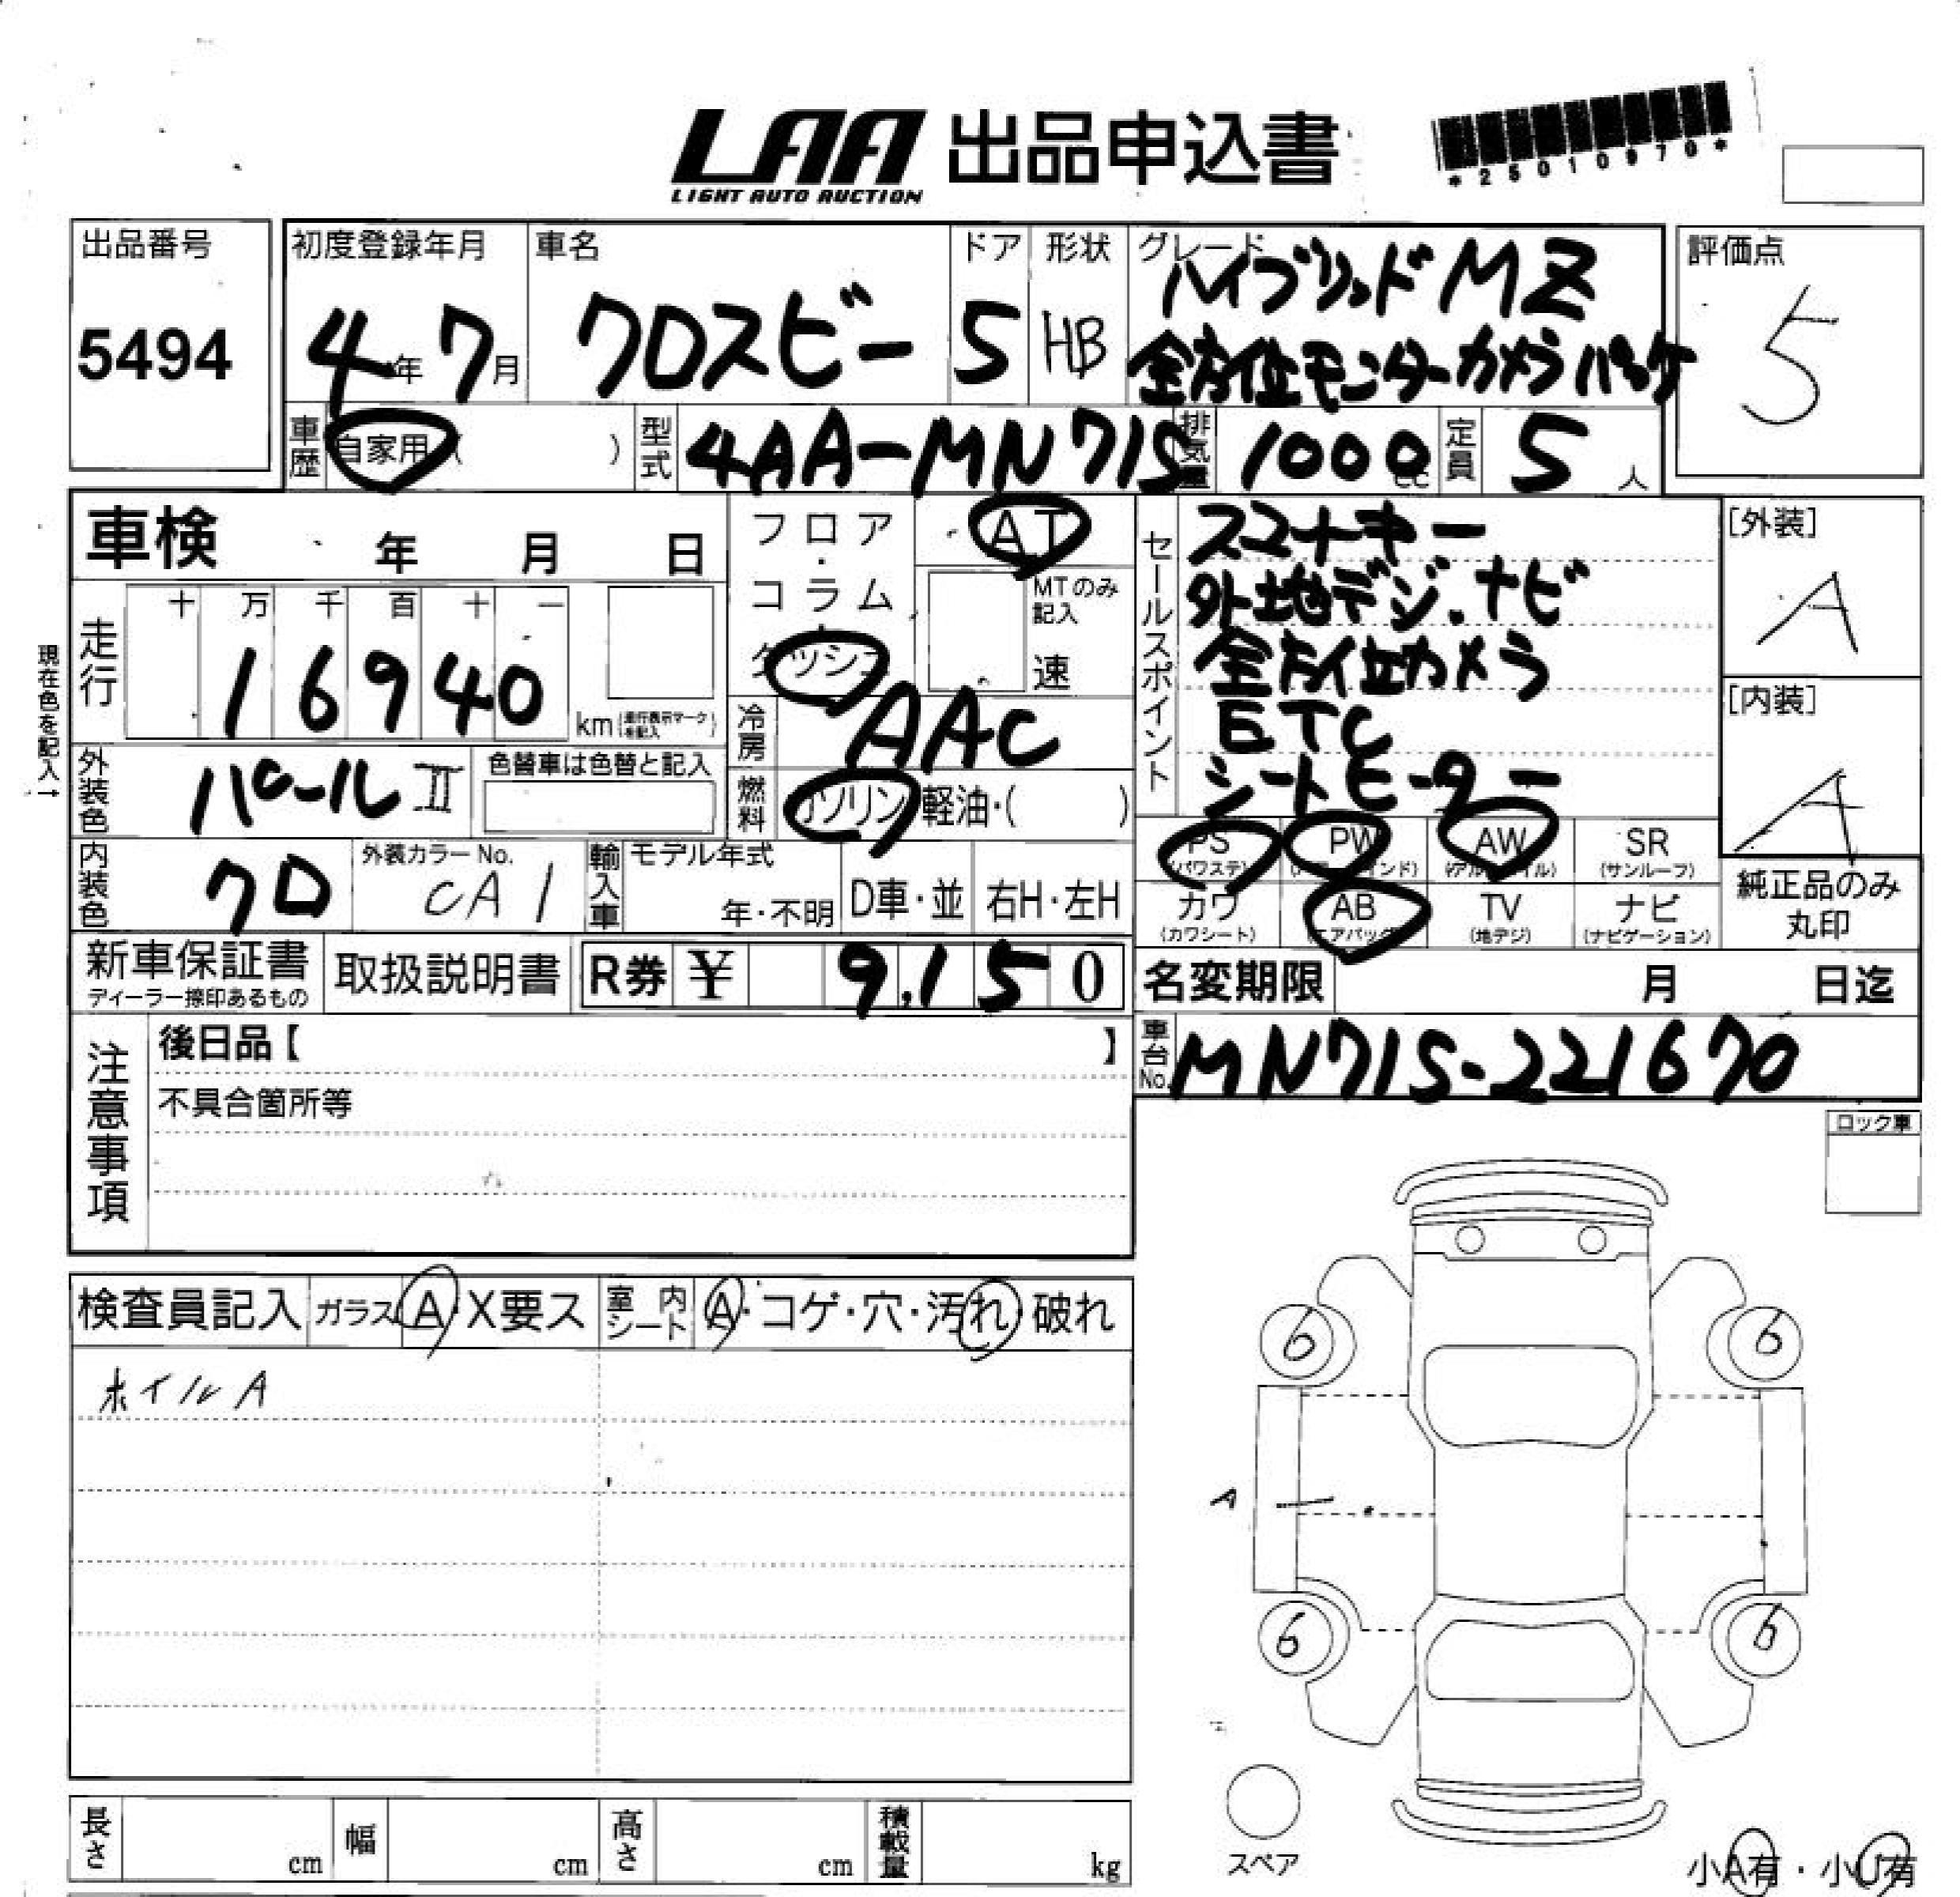 LAA 出品申込書
LIGHT AUTO AUCTION
*25010970*
出品番号
5494
初度登録年月
4年 7月
車名
クロスビー
ドア
5
形状
HB
グレード
ハイブリッドMZ
全方位モニターカメラパッケ
評価点
5
車歴 自家用 ( )
型式 4AA-MN71S
排気量 1000 cc
定員 5 人
車検 年 月 日
フロア・コラム・ダッシュ
AT
MTのみ記入
速
セールスポイント
スマートキー
外地デジ.ナビ
全方位カメラ
ETC
シートヒーター
[外装]
A
[内装]
A
現在色を記入→
走行
十 万 千 百 十 一
16940
km (走行表示マークを記入)
冷房 AAC
燃料 ガソリン・軽油・( )
外装色 パールII
色替車は色替と記入
内装色 クロ
外装カラーNo.
CA1
輸入車
モデル年式
年・不明
D車・並
右H・左H
PS (パワステ)
PW (パワーウインド)
AW (アルミホイル)
SR (サンルーフ)
カワ (カワシート)
AB (エアバッグ)
TV (地デジ)
ナビ (ナビゲーション)
純正品のみ
丸印
新車保証書
ディーラー捺印あるもの
取扱説明書
R券 ¥ 9,150
名変期限 月 日迄
車台No. MN71S-221670
注意事項
後日品【 】
不具合箇所等
ロック車
検査員記入 ガラス A・X要ス 室内シート A・コゲ・穴・汚れ・破れ
ホイルA
6 6
A
6 6
スペア
小A有・小U有
長さ cm 幅 cm 高さ cm 積載量 kg